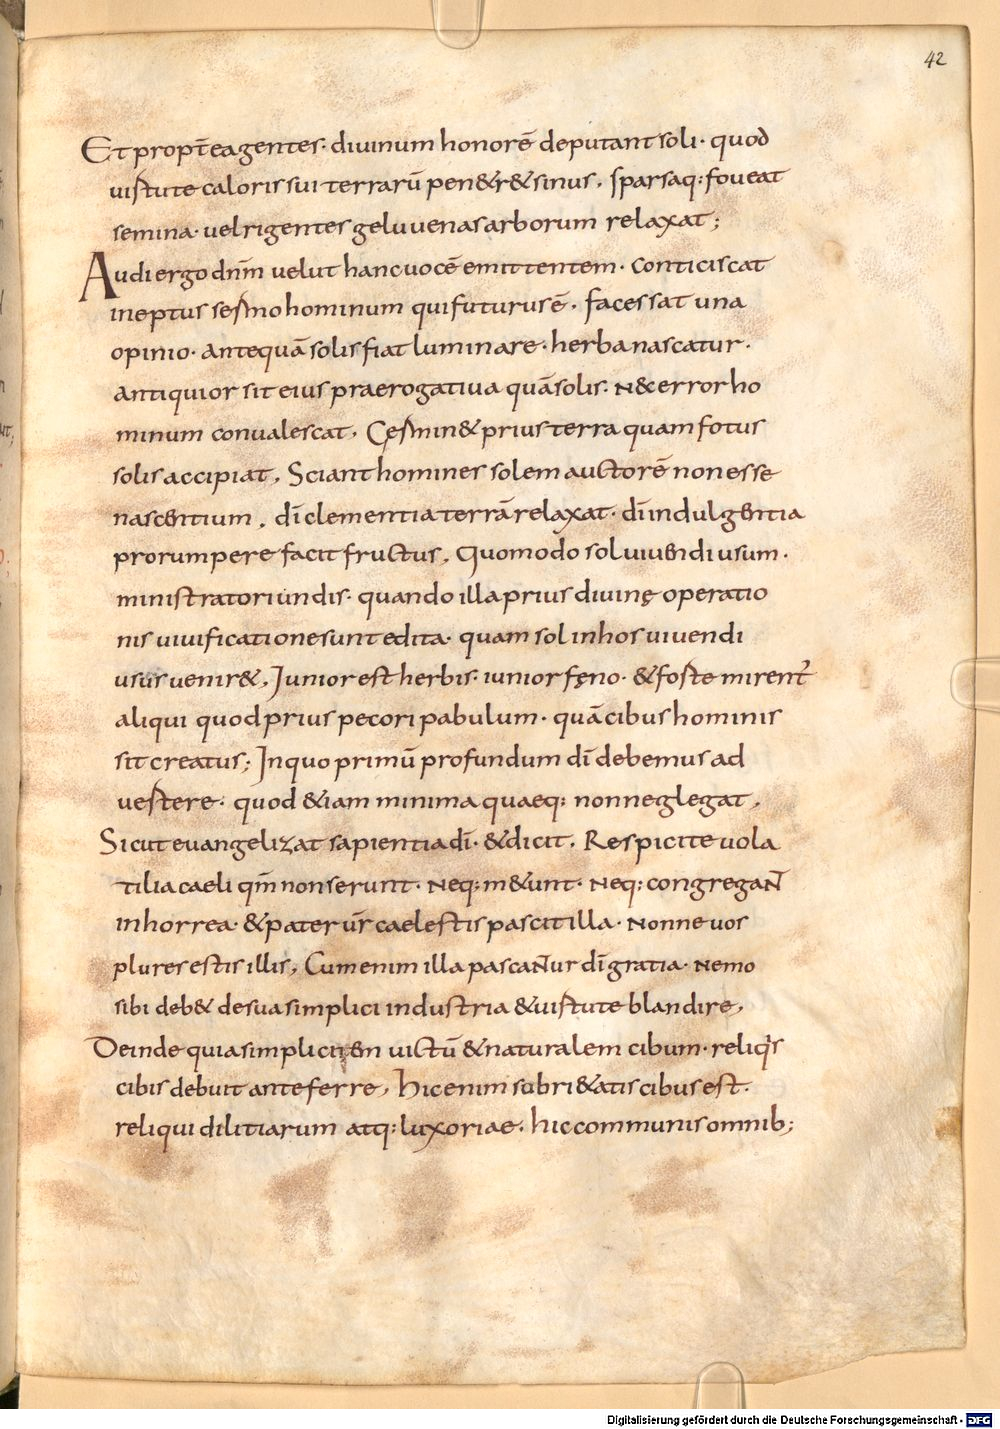 42
Et propt̄ea gentes· divinum honorē deputant soli· quod
virtute caloris sui terrarū pen&r& sinus, sparsaq: foveat
semina· vel rigentes gelu venas arborum relaxat;
Audi ergo dn̄m velut hanc vocē emittentem· Conticiscat
ineptus sermo hominum qui futurus ē· facessat una
opinio· Antequā solis fiat luminare· herba nascatur·
antiquior sit eius praerogativa quā solis· N& error ho
minum convalescat, Cęrmin& prius terra quam fotus
solis accipiat, Sciant homines solem auctorē non esse
nascentium, dī clementia terrā relaxat· dī indulgentia
prorumpere facit fructus, Quomodo sol vivendi usum·
ministrat oriundis· quando illa prius divinę operatio
nis vivificatione sunt edita· quam sol in hos vivendi
usus venir&, Junior est herbis· iunior fęno· & forte mirent̄
aliqui quod prius pecori pabulum· quā cibus hominis
sit creatus; In quo primū profundum dī debemus ad
vertere· quod &iam minima quaeq: non neglegat,
Sicut evangelizat sapientia dī· & dicit· Respicite vola
tilia caeli qm̄ non serunt· Neq: m&unt· Neq: congregant
in horrea· & pater vr̄ caelestis pascit illa· Nonne vos
plures estis illis, Cum enim illa pascantur dī gratia· Nemo
sibi deb& de sua simplici industria & virtute blandire,
Deinde quia simplicem victū & naturalem cibum· reliqis
cibis debuit anteferre, Hic enim sobri&atis cibus est·
reliqui dilitiarum atq: luxoriae· hic communis omnib;
Digitalisierung gefördert durch die Deutsche Forschungsgemeinschaft - DFG